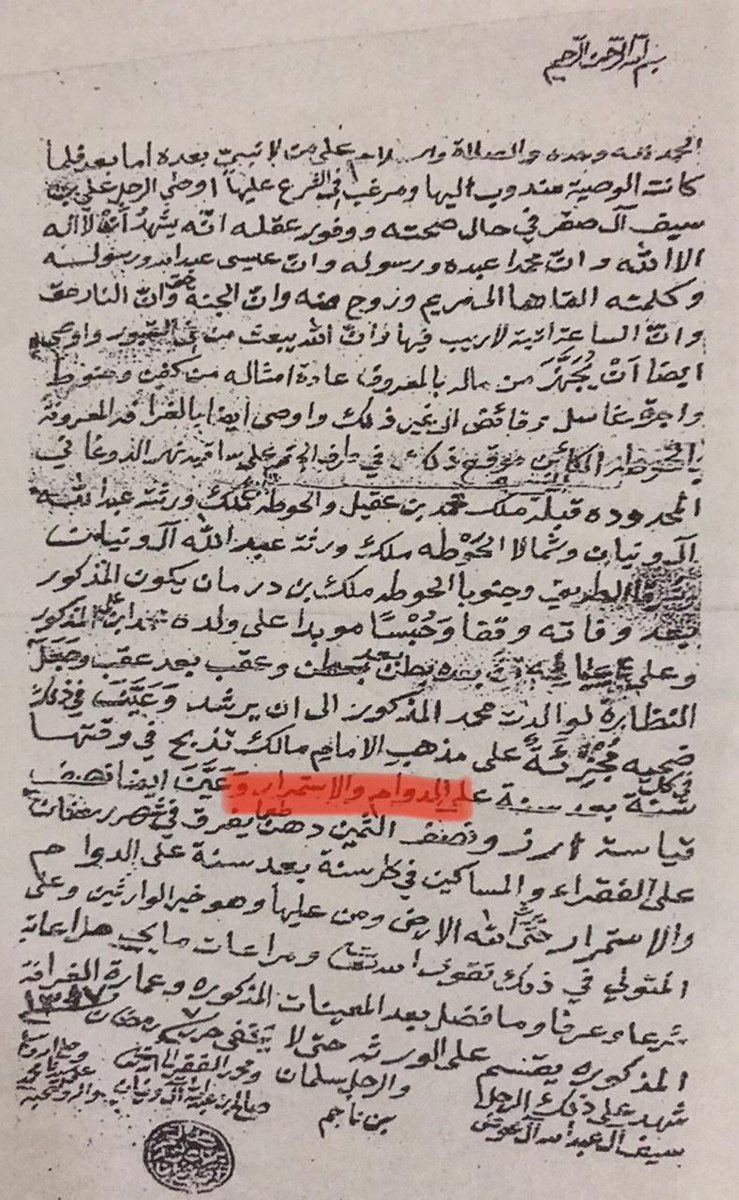 بسم الله الرحمن الرحيم
الحمد لله وحده والصلاة والسلام على من لا نبي بعده اما بعد فلما
كانت الوصية مندوب اليها ومرغب في الشرع عليها اوصى الرجل علي بن
سيف آل صقر في حال صحته ووفور عقله انه يشهد أن لا اله
الا الله وان محمدا عبده ورسوله وان عيسى عبد الله ورسوله
وكلمته القاها الى مريم وروح منه وان الجنة حق وان النار حق
وان الساعة اتية لا ريب فيها وان الله يبعث من في القبور واوصى
ايضا أن يُجَهَّز من ماله بالمعروف عادة امثاله من كفن وحنوط
واجرة غاسل وقائض الى غير ذلك واوصى ايضا بالغرافه المعروفة
بالحوطه موقع ذلك في على ساقيه نهر الدوغاني
المحدوده قبلة ملك محمد بن عقيل والحوطه ملك ورثة عبد الله
آل ونيان وشمالا الحَوْطه ملك ورثة عبد الله آل ونيان
وشرقا الطريق وجنوبا الحوطه ملك بن درمان يكون المذكور
بعد وفاته وقفا وَحُبْسًا موبدا على ولده محمد ابن علي المذكور
وعلى من بعده بطن بعد بطن وعقب بعد عقب وجعل
النظارة لوالدت محمد المذكور الى ان يرشد وَعَيَّنَ في ذلك
ضحيه مُجْزِئَةً على مذهب الامام مالك تذبح في وقتها
في كل سنة بعد سنة على الدوام والاستمرار وَعَيَّنَ ايضا نصف
قياسة ارز ونصف الثمن دهن طعاما يفرق في شهر رمضان
على الفقراء والمساكين في كل سنة بعد سنة على الدوام
والاستمرار حتَّى يرث الله الارض ومن عليها وهو خير الوارثين وعلى
المتولي في ذلك تقوى الله ومراعات ما يجب مراعاته
شرعا وعرفا وما فضل بعد المعينات المذكوره وعمارة الغرافة
المذكوره يقتسم على الورثه حتى لا يخفى حرر رمضان
شهد على ذلك الرجل
سيف آل عبد الله آل عوض
والرجل سلمان
بن ناجم
ومحرر الفقير الى الله
صالح بن عبد الله آل ونيان